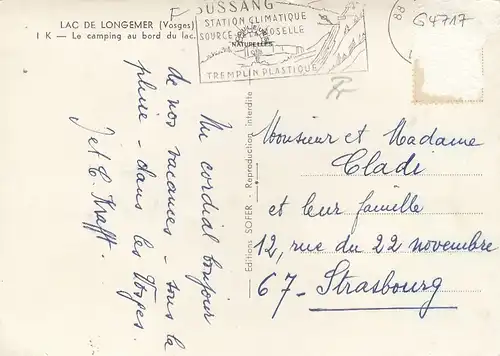 LAC DE LONGEMER (Vosges)
I K — Le camping au bord du lac.
BUSSANG
STATION CLIMATIQUE
SOURCE DE LA MOSELLE
NATURELLES
TREMPLIN PLASTIQUE
88
G4717
Editions SOFER - Reproduction interdite
Un cordial bonjour
de nos vacances - sous la
pluie - dans les Vosges.
J et C. Krafft.
Monsieur et Madame
Cladi
et leur famille
12, rue du 22 novembre
67 - Strasbourg